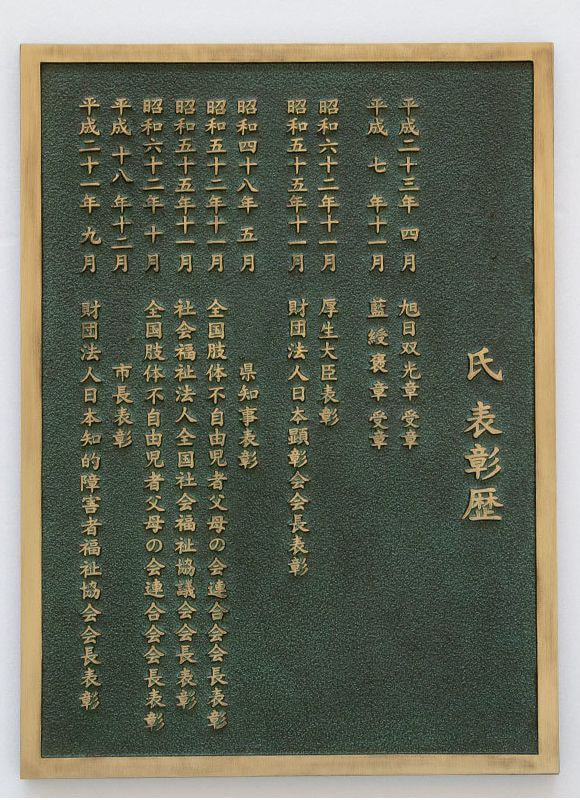 氏 表彰歴
平成二十三年 四 月 旭日双光章 受章
平成 七 年十一月 藍綬褒章 受章
昭和六十二年十一月 厚生大臣表彰
昭和五十五年十一月 財団法人日本顕彰会会長表彰
昭和四十八年 五 月 県知事表彰
昭和五十二年十一月 全国肢体不自由児者父母の会連合会会長表彰
昭和五十五年十一月 社会福祉法人全国社会福祉協議会会長表彰
昭和六十二年 十 月 全国肢体不自由児者父母の会連合会会長表彰
平成 十八 年十二月 市長表彰
平成二十一年 九 月 財団法人日本知的障害者福祉協会会長表彰